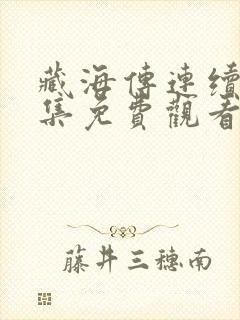 藏海傳連續
集免費觀看
藤井三穗南